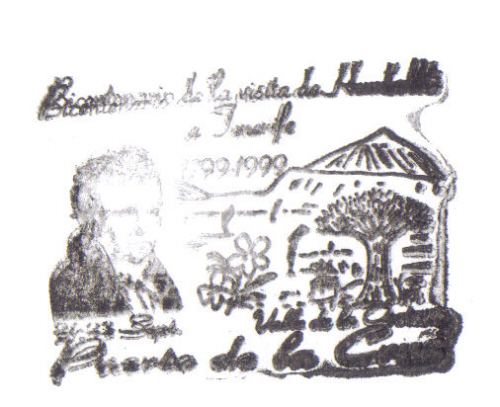 Bicentenario de la visita de
a Tenerife
1799-1999
Sept.
Valle de la
Puerto de la Cruz